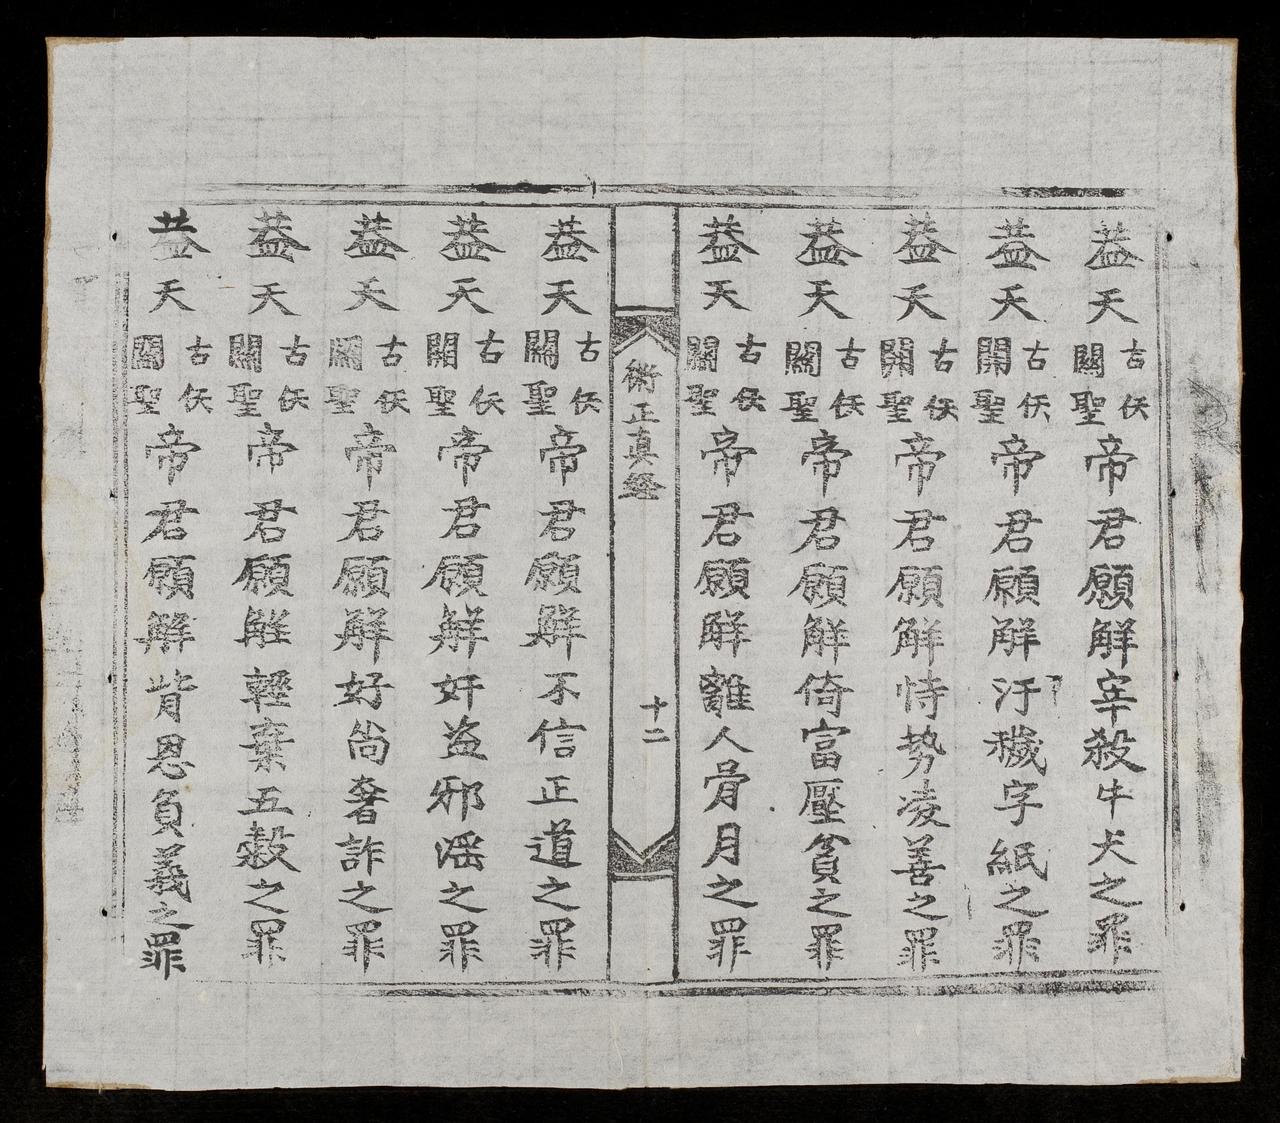 葢天古佚關聖帝君願解宰殺牛犬之罪
葢天古佚關聖帝君願解汙穢字紙之罪
葢天古佚關聖帝君願解恃势凌善之罪
葢天古佚關聖帝君願解倚富壓貧之罪
葢天古佚關聖帝君願解離人骨月之罪
術正真經
十二
葢天古佚關聖帝君願解不信正道之罪
葢天古佚關聖帝君願解奸盗邪滛之罪
葢天古佚關聖帝君願解好尚奢詐之罪
葢天古佚關聖帝君願解輕棄五穀之罪
葢天古佚關聖帝君願解背恩負義之罪